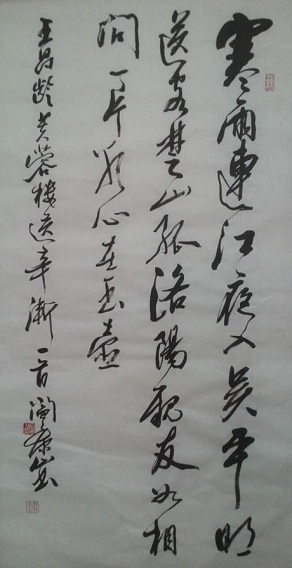 寒雨連江夜入吴平明
送客楚山孤洛陽親友如相
問一片冰心在玉壺
王昌龄芙蓉楼送辛渐一首